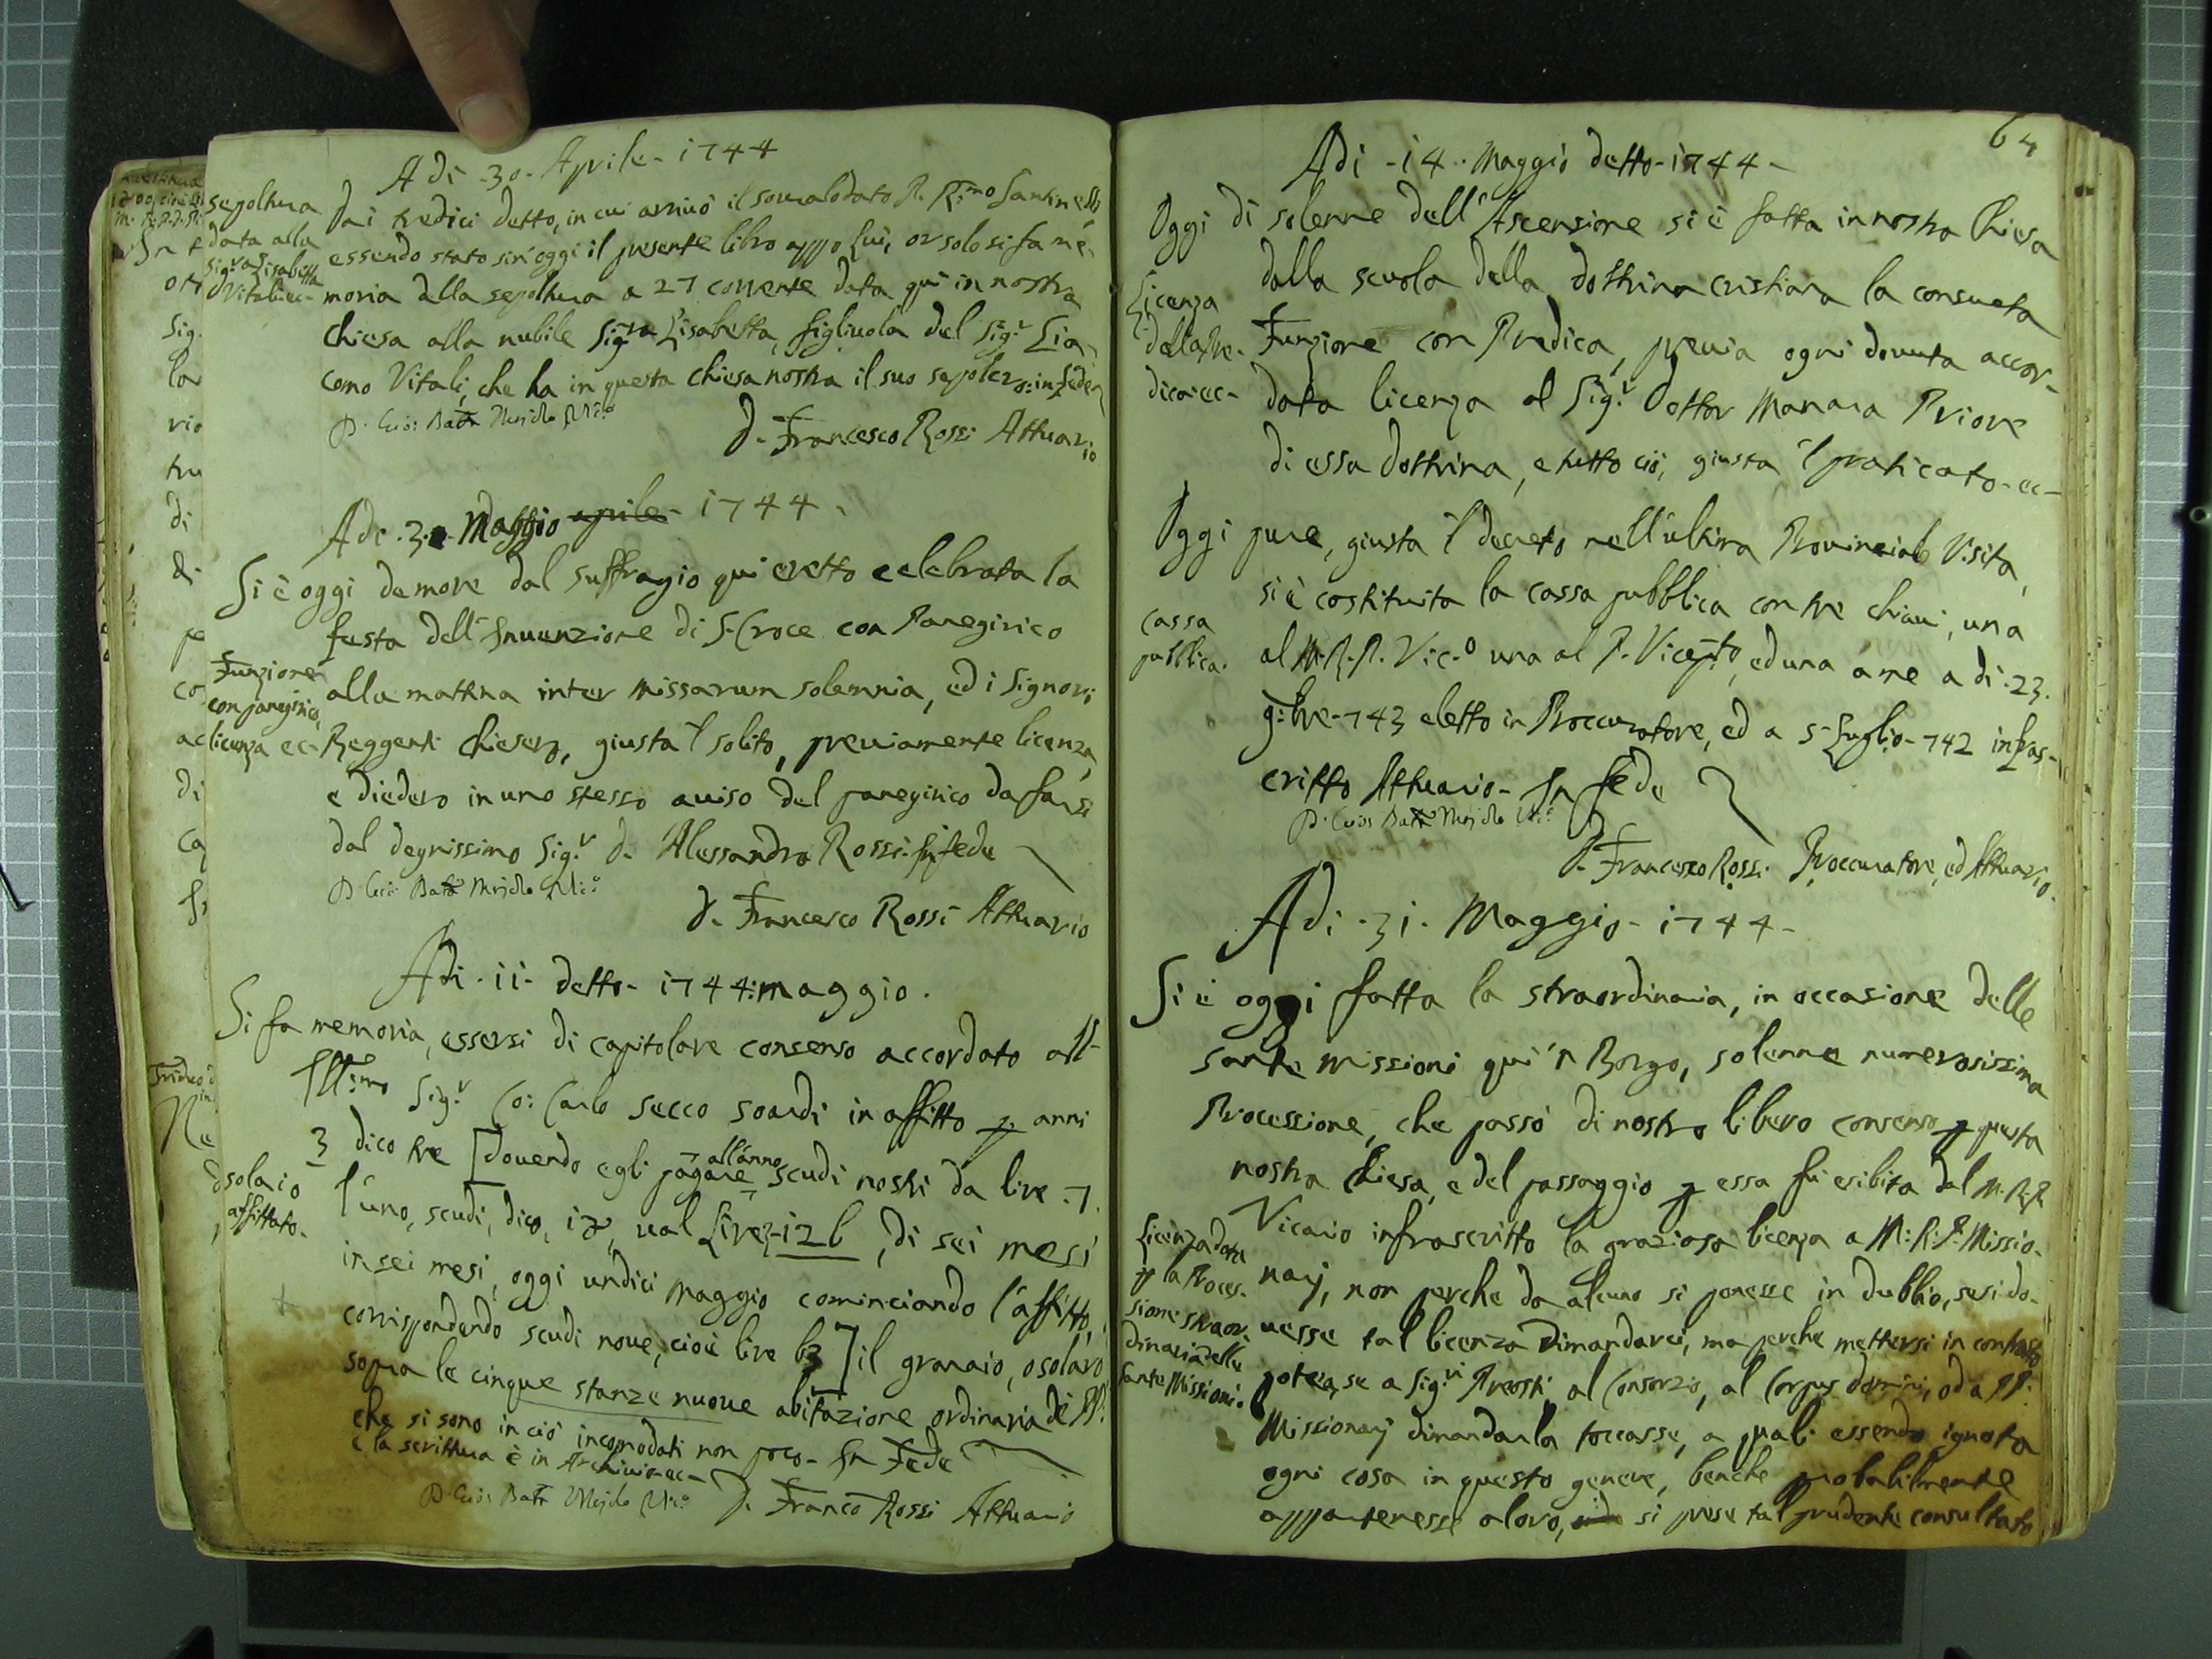 Adi -30- Aprile- 1744
sepoltura
data alla
Sig.ra Lisabetta
Vitali ec-
Dai tredici detto, in cui arrivò il sovralodato P. R.mo Santinelli
essendo stato sin'oggi il presente libro appo lui, or solo si fa me-
moria della sepoltura a 27 corrente data qui in nostra
chiesa alla nubile Sig.ra Lisabetta, figliuola del Sig.r Gia-
como Vitali, che ha in questa chiesa nostra il suo sepolcro: in fede
D. Francesco Rossi Attuario
Adi .3. Maggio aprile- 1744.
Si è oggi de more dal suffragio qui eretto celebrata la
festa dell'Invenzione di S. Croce con Panegirico
Funzione
con panegirico,
licenza ec-
alla mattina inter missarum solemnia, ed i Signori
Reggenti chiesero, giusta 'l solito, previamente licenza,
e diedero in uno stesso aviso del panegirico da farsi
dal degnissimo Sig.r D. Alessandro Rossi. In fede
D. Francesco Rossi Attuario
Adi .11- detto- 1744: maggio.
Si fa memoria, essersi di capitolare consenso accordato all-
Ill:mo Sig.r Co: Carlo Secco Soardi in affitto p. anni
3 dico tre [dovendo egli pagare all'anno scudi nostri da lire .7.
solaio
affittato.
l'uno, scudi, dico, 18, val Lire-126, di sei mesi
in sei mesi, oggi undici maggio cominciando l'affitto,
corrispondendo scudi nove, cioè lire 63] il granaio, o solaro
sopra le cinque stanze nuove abitazione ordinaria de PP.
che si sono in ciò incomodati non poco- In Fede
e la scrittura è in Archivio- ec-
D. Franco Rossi Attuario
64
Adi -14.. Maggio detto-1744-
Oggi dì solenne dell'Ascensione si è fatta in nostra Chiesa
dalla scuola della dottrina cristiana la consueta
Licenza
della Pre-
dica ec-
Funzione con Predica, previa ogni dovuta accor-
data licenza al Sig.r Dottor Manara Priore
di essa dottrina, e tutto ciò, giusta 'l praticato- ec-
Oggi pure, giusta 'l decreto nell'ultima Provinciale Visita,
si è costituita la cassa pubblica con tre chiavi, una
cassa
pubblica.
al M.R.P. Vic.o una al P. Vicep.to, ed una a me a di .23.
9:bre-743 eletto in Proccuratore, ed a 5 Luglio-742 infras-
critto Attuario- In fede
D. Francesco Rossi Proccuratore, ed Attuario.
Adi .31. Maggio- 1744-
Si è oggi fatta la straordinaria, in occasione delle
sante missioni qui 'n Borgo, solenne numerosissima
Processione, che passò di nostro libero consenso p questa
nostra Chiesa, e del passaggio p essa fu esibita dal M.R.P.
Licenza data
p la Proces-
sione straor-
dinaria delle
Sante Missioni.
Vicario infrascritto la graziosa licenza a M:R:P: Missio-
narj, non perche da alcuno si ponesse in dubbio, se si do-
vesse tal licenza dimandarci, ma perche mettersi in contrasto
potea, se a Sig.ri Preosti, al Consorzio, al Corpus Domini, od a PP.
Missionarj dimandarla toccasse, a quali essendo ignota
ogni cosa in questo genere, benche probabilmente
appartenesse a loro, si prese tal prudente consultato